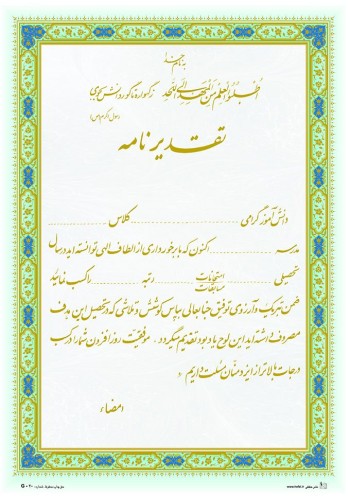 به نام خدا
اُطْلُبُوا الْعِلْمَ مِنَ الْمَهْدِ اِلَی اللَّحْدِ ز گهواره تا گور دانش بجوی
رسول اکرم (ص)
تقدیرنامه
دانش آموز گرامی ............ کلاس ............
مدرسه ............ اکنون که با برخورداری از الطاف الهی توانسته اید در سال
تحصیلی ............ امتحانات مسابقات ............ رتبه ............ را کسب نمائید
ضمن تبریک و آرزوی توفیق جنابعالی بپاس کوشش و تلاشی که در تحصیل این هدف
مصروف داشته اید این لوح یادبود تقدیم میگردد . موفقیت روز افزون شما را در کسب
درجات بالاتر از ایزد منان مسئلت داریم
امضاء